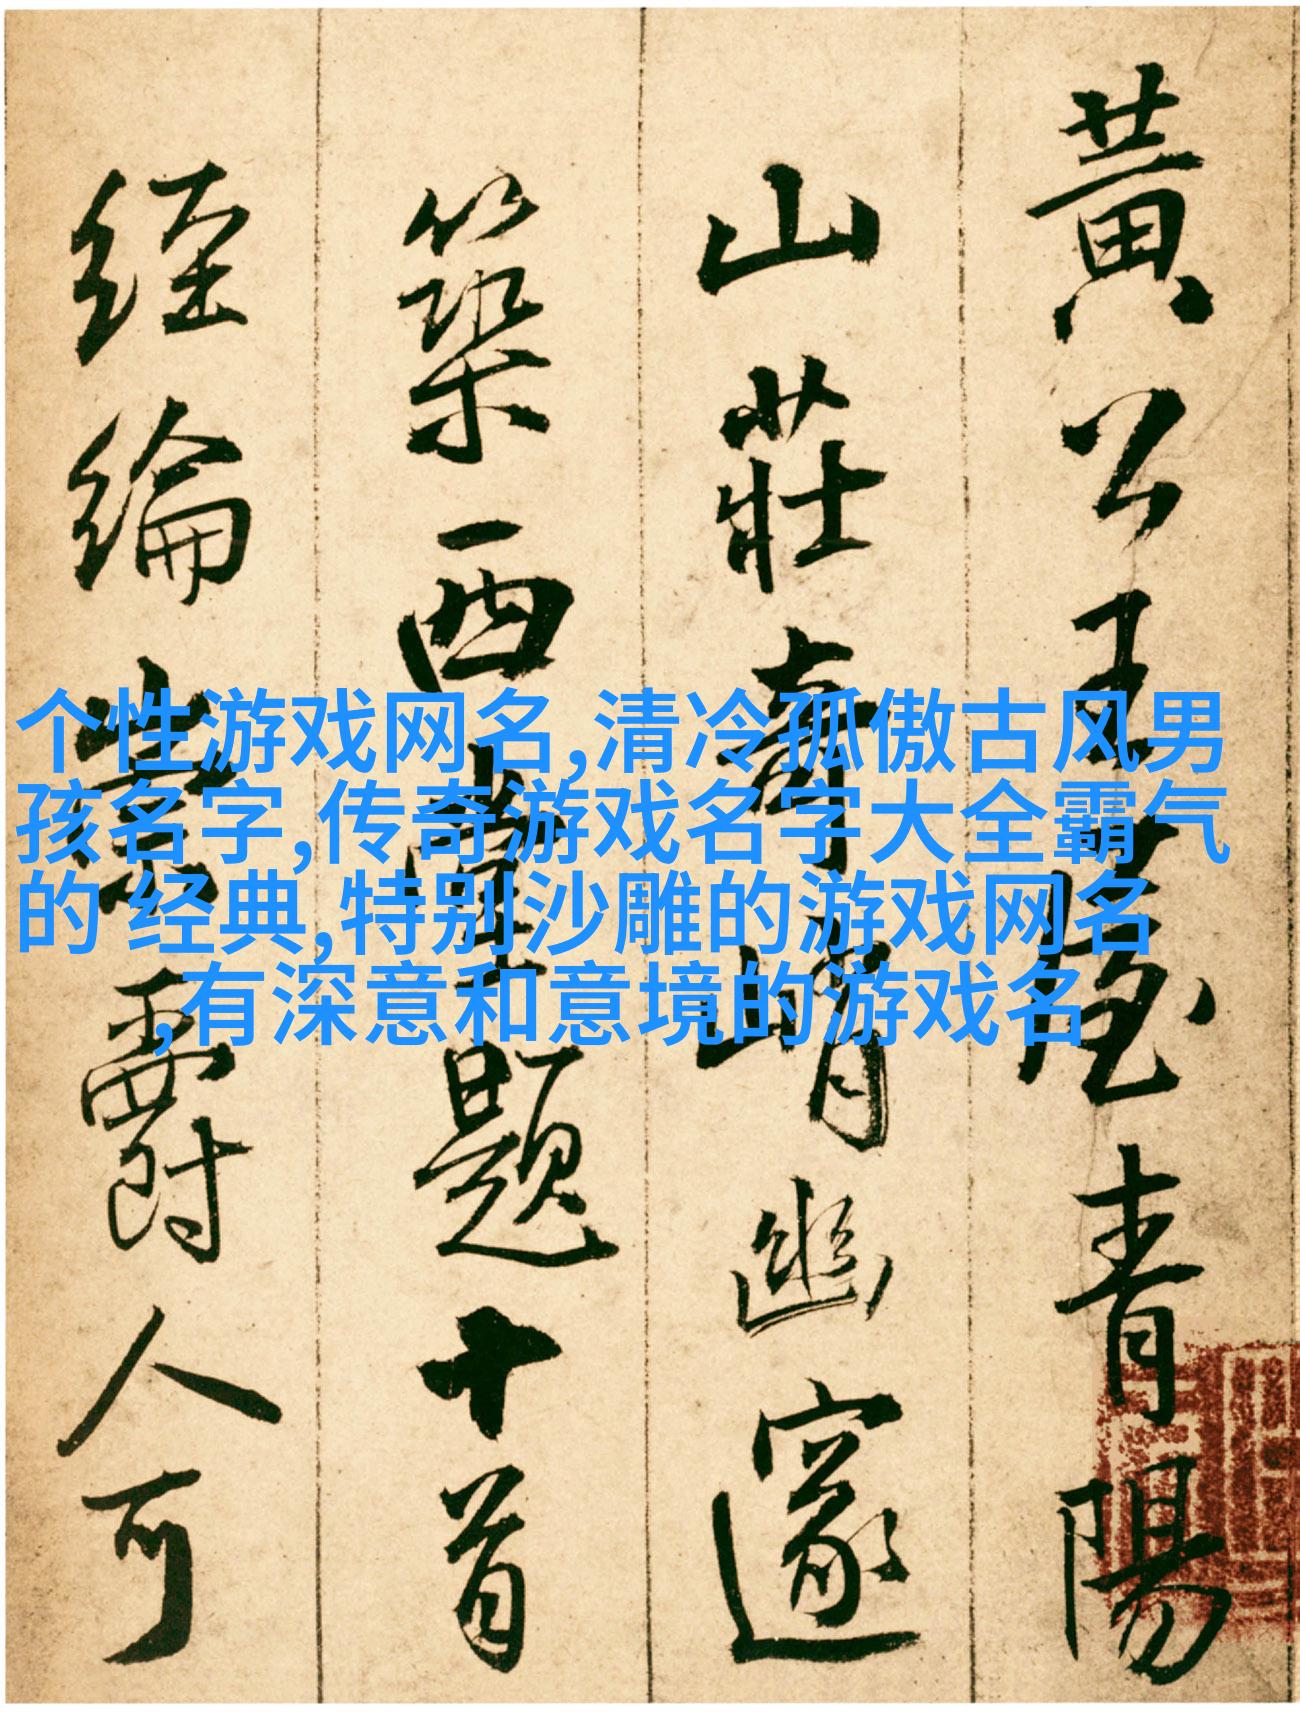 黄公王屋青陽
山莊奇峭幽邃
築西菴題十首
經綸嵩爵人可
个性游戏网名,清冷孤傲古风男
孩名字,传奇游戏名字大全霸气
的 经典,特别沙雕的游戏网名
,有深意和意境的游戏名